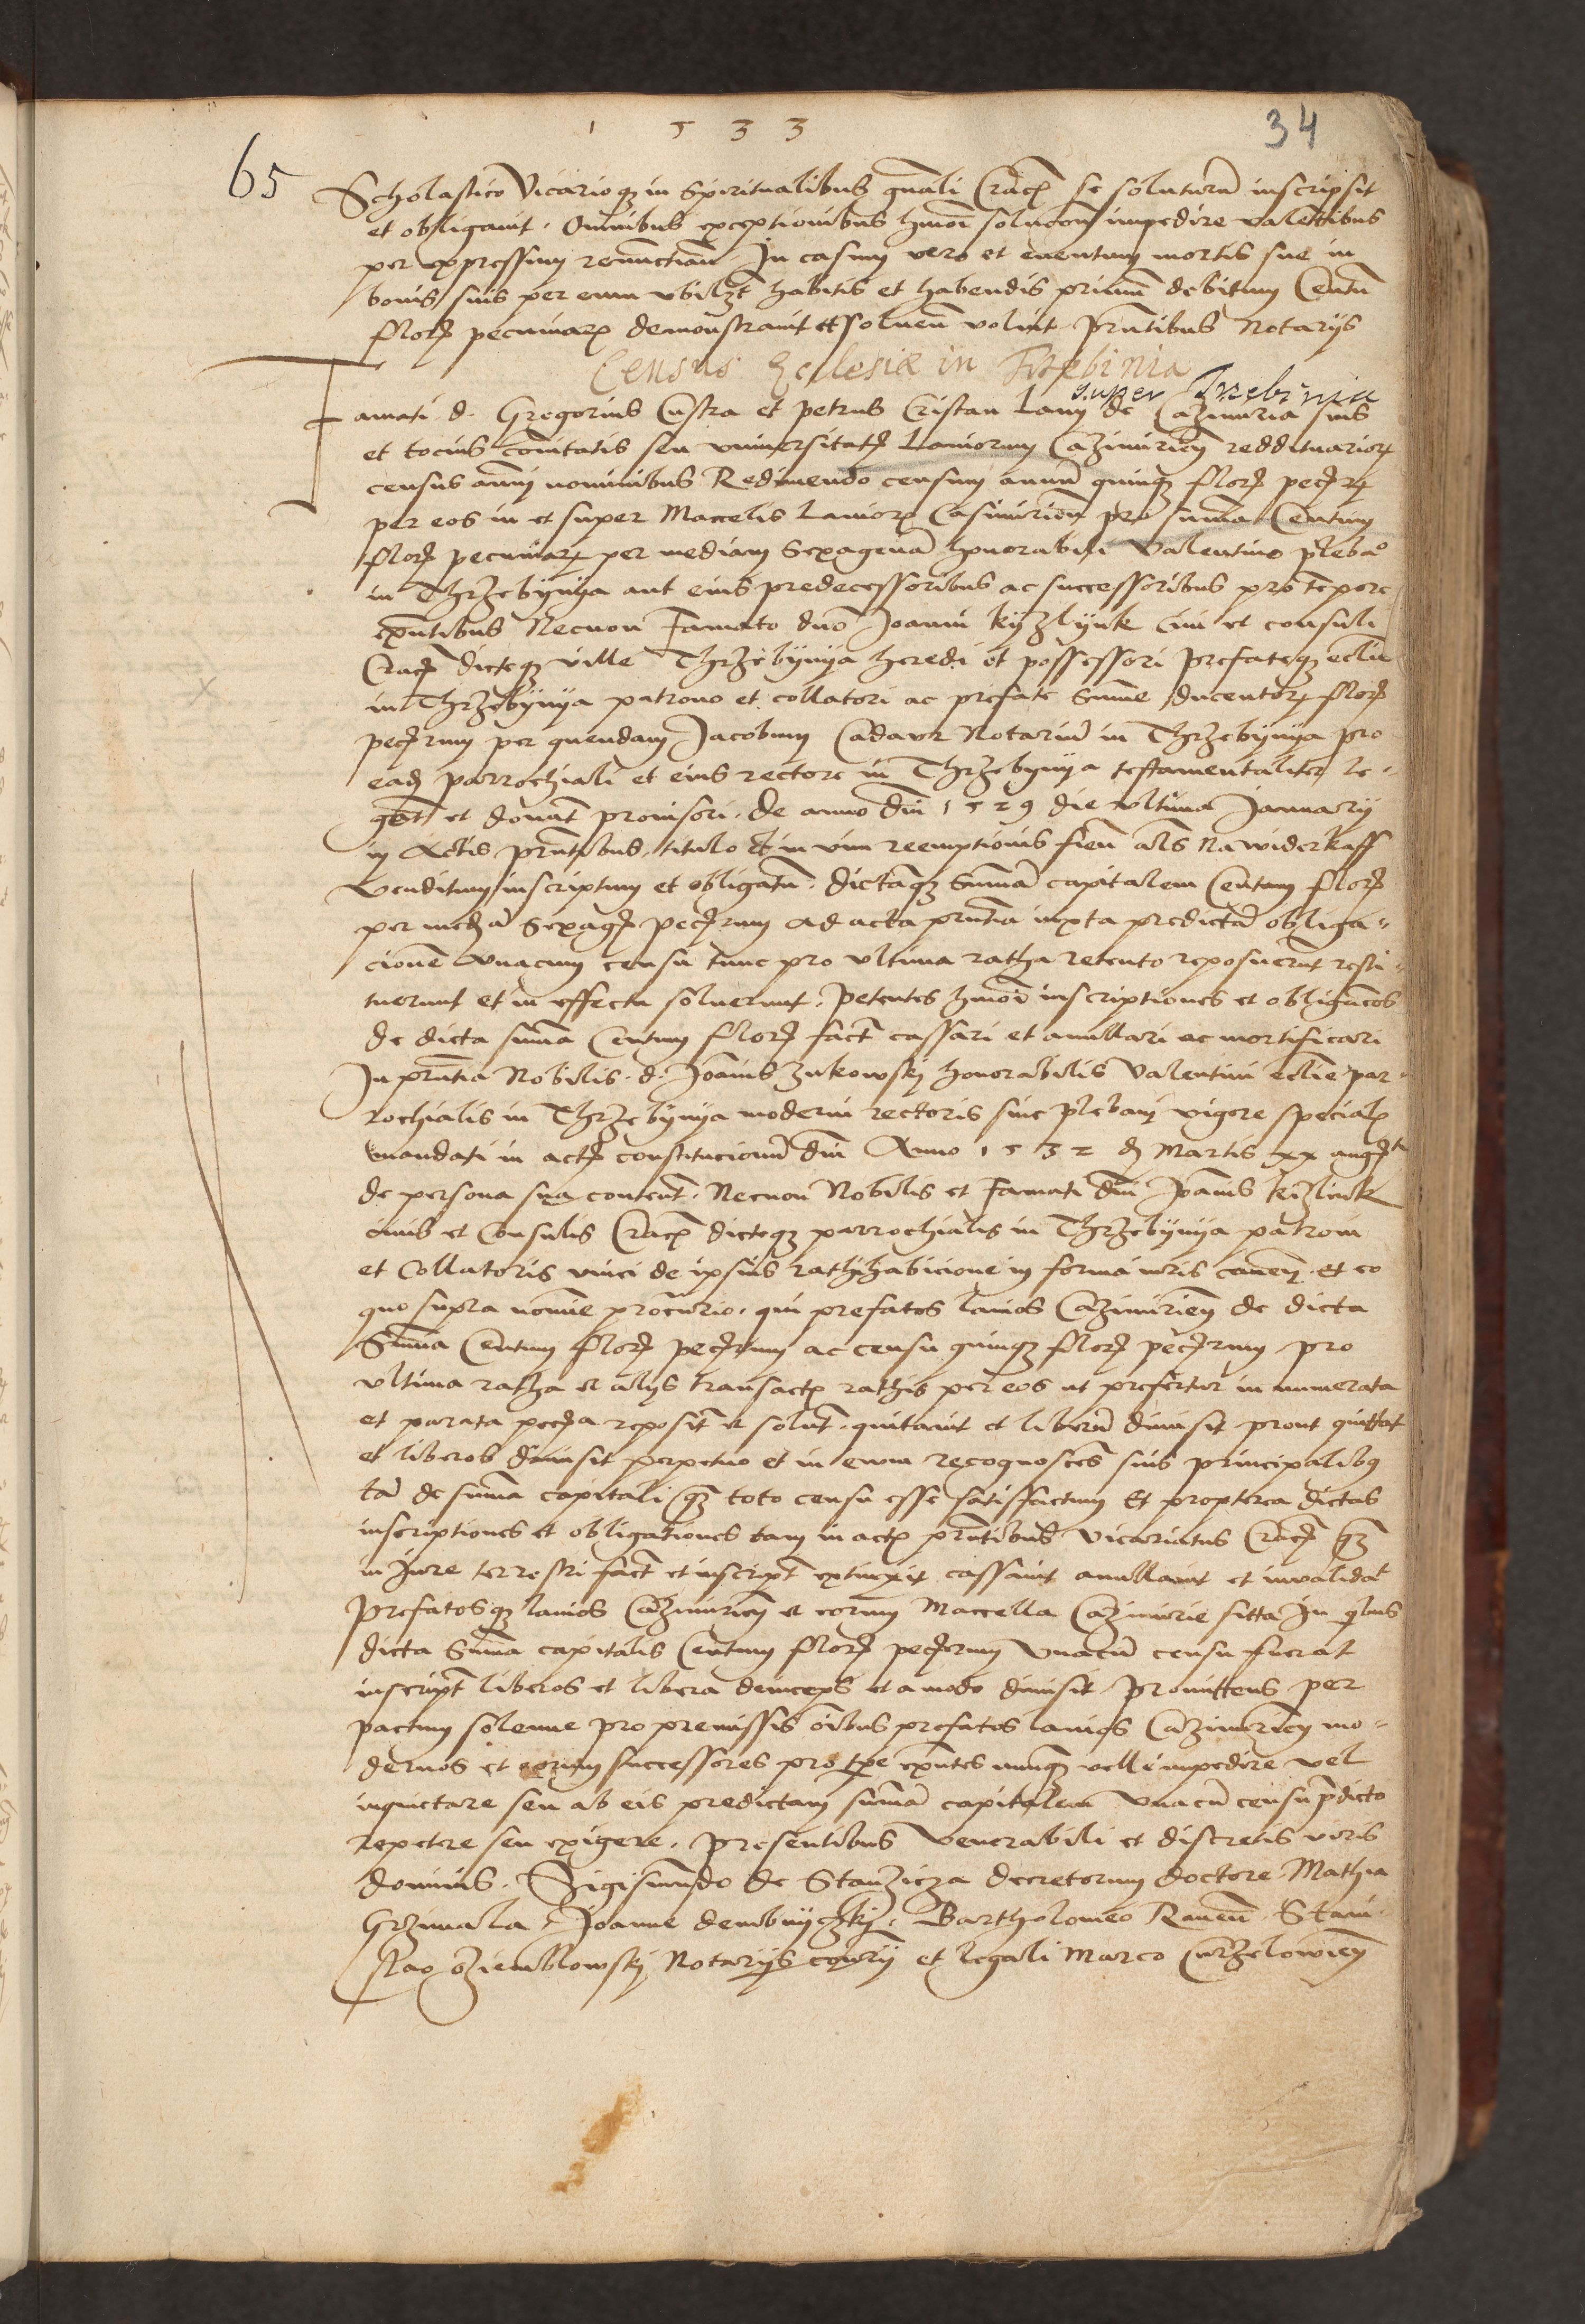 1 5 3 3
34
65
Scholastico Vicarioqȝ in Spiritualibus gnali Crac se soluturum inscripsit
et obligavit. Omnibus exceptionibus hmoi solucoem impedire valentibus
per expressum renunctiam In casum vero et eventum mortis sue in
bonis suis per eum ubilzt habitis et habendis primum debitum Centum
flor pecuniarꝝ demonstravit et solvend voluit Prntibus Notarijs
Census Ecclesiæ in Trzebinia
super Trzebinia
Famati d. Gregorius Custra et petrus Cristan Lanij de Cazimiria suis
et tocius comitatis seu universitatis Laniorum Cazimirien reddituariorꝝ
census annui nominibus Redimendo censum annuum quinqȝ flor pecrꝝ
per eos in et super Maccelis Laniorꝝ Casimirien pro summa Centum
flor pecuniarꝝ per mediam Sexagenam honorabili Valentino plebano
in Thrzebÿnÿa aut eius predecessoribus ac successoribus pro tempore
exntibus Necnon Famato dno Joanni Kÿzlÿnk civi et consuli
Crac dicteqȝ ville Thrzebÿnÿa heredi et possessori prefateqȝ eclie
in Thrzebÿnÿa patrono et collatori ac prefate summe ducentorꝝ flor
pecrum per quendam Jacobum Cadavr Notarium in Thrzebÿnÿa pro
ead parrochiali et eius rectore in Thrzebÿnÿa testamentaliter le-
gat et donat provisori. de anno dni 1529 die ultima Januarij
in Actis prntibus, titulo et in vim reemptionis fien als Nawiderkaff
Venditum inscriptum et obligatum. dictamqȝ summam capitalem Centum flor
per mediam Sexag pecrum ad acta prntia iuxta predictam obliga-
cionem unacum censu tunc pro ultima ratha retento reposuerunt resti-
tuerunt et in effectu solverunt. Petentes hmoi inscriptiones et obligacoes
de dicta summa Centum flor fact cassari et annullari ac mortificari
In prntia Nobilis. d. Joannis Zukowskj honorabilis Valentini eclie par-
rochialis in Thrzebÿnÿa moderni rectoris sive plebani vigore specialis
mandati in actis constitucionum dni Anno 1532 d Martis xx augti
de persona sua content. Necnon Nobilis et Famati dni Joannis Kizlink
civis et Consulis Crac dicteqȝ parrochialis in Thrzebÿnÿa patroni
et Collatoris vinci de ipsius rathihabicione in forma iuris caven. et eo
quo supra nomine procurio. qui prefatos lanios Cazimirien de dicta
Summa Centum flor pecrum ac censu quinqȝ flor pecrum pro
ultima ratha et alijs transactis rathis per eos ut prefertur in numerata
et parata pecia reposit et solut. quitavit et liberum dimisit prout quittat
et liberos dimisit perpetuo et in evum recognoscens suis principalibus
tam de summa capitali qȝ toto censu esse satisfactum Et propterea dictas
inscriptiones et obligationes tam in actis prntibus Vicariatus Crac qȝ
in Jure terrestri fact et inscript extinxit cassavit annullavit et invalidat
Prefatosqȝ lanios Cazimirien et eorum Maccella Cazimirie sitta In qbus
dicta Summa capitalis Centum flor pecrum unacum censu fuerat
inscript liberos et libera deinceps et a modo dimisit Promittens per
pactum solenne pro premissis oibus prefatos lanios Cazimirien mo-
dernos et eorum successores pro tpe exntes nunqȝ velle impedire vel
inquietare seu ab eis predictam summam capitalem unacum censu pdicto
repetere seu exigere. Presentibus Venerabili et discretis viris
dominis. Sigismundo de Stanzicza decretorum doctore Mathia
Grzimala Joanne dembnÿczkj. Bartholomeo Raven. Stani-
slao Ziemblowskj Notarijs et legali Marco Curzelowien